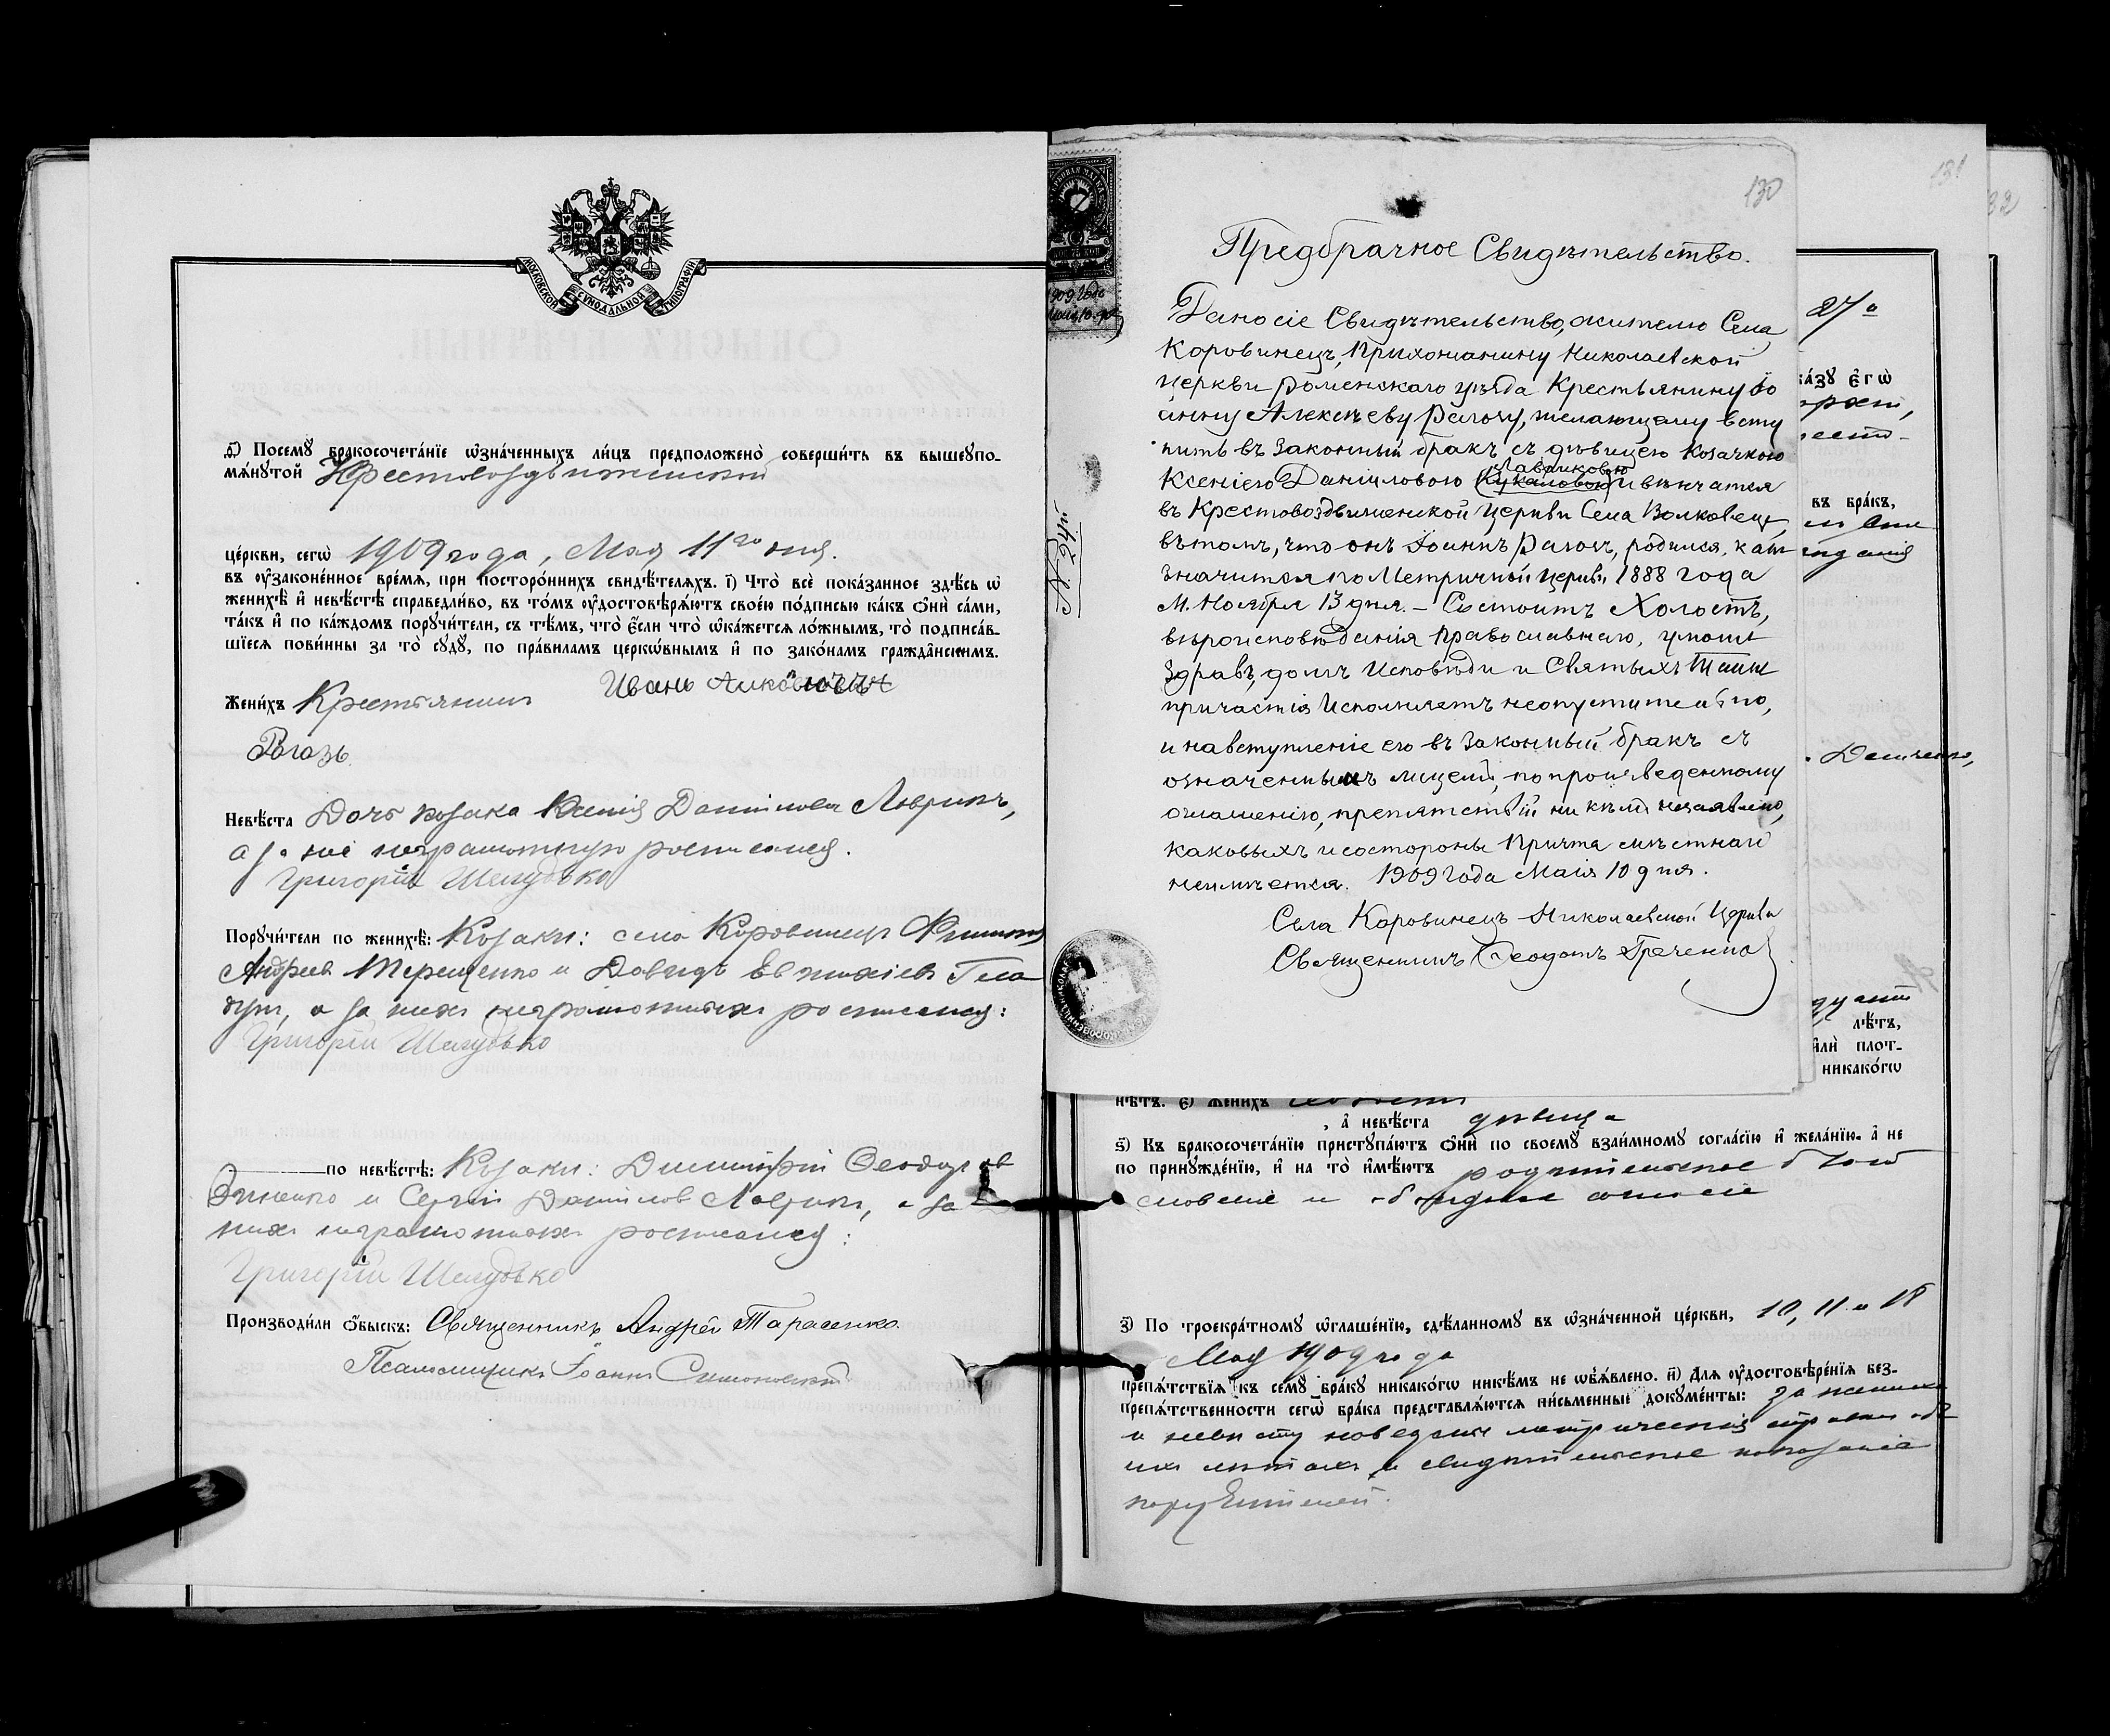 МОСКОВСКОЙ СѴНОДАЛЬНОЙ ТИПОГРАФІИ
д҃) Посемꙋ̀ бракосочета́нїе ѡ҆зна́ченныхъ ли́цъ предположено̀ соверши́ть въ вышеꙋпо-
мѧ́нꙋтой Крестовоздвиженской
це́ркви, сегѡ̀ 1909 года, Мая 11го дня.
въ ᲂу҆зако́ненное вре́мѧ, при посторо́ннихъ свидѣ́телѧхъ. і҃) Что̀ всѐ пока́занное здѣ́сь ѡ҆
женихѣ̀ и҆ невѣ́стѣ справедли́во, въ то́мъ ᲂу҆достовѣрѧ́ютъ свое́ю по́дписью ка́къ ѻ҆нѝ са́ми,
та́къ и҆ по ка́ждомъ порꙋчи́тели, съ тѣ́мъ, что̀ є҆́сли что̀ ѡ҆ка́жетсѧ ло́жнымъ, то̀ подписа́в-
шїесѧ пови́нны за то̀ сꙋдꙋ̀, по пра́виламъ церко́внымъ и҆ по зако́намъ гражда́нскимъ.
Жени́хъ Крестьянинъ Иванъ
Рогозь
Невѣ́ста Дочь козака Ксенія Даніилова Лавринъ,
а за нее неграмотную росписался.
Григорій Шелудько
Порꙋчи́тели по женихѣ̀: Козаки: села Коровинецъ Филиппъ
Андреев Терещенко и Давидъ Евтихіев Гла
дун, а за них неграмотных росписался:
Григорій Шелудько
по невѣ́стѣ: Козаки: Димитрій Феодоров
и Сергій Даніилов Лаврин, а за
них неграмотных росписался:
Григорій Шелудько
Производи́ли ѻ҆́быскъ: Священникъ Андрей Тарасенко
Псаломщикъ Іоаннъ Симоновскій
130
131
32
КОП 75 КОП
1909 года
Маія 10 дня
№ 24й
Предбрачное Свидѣтельство.
Дано сіе Свидѣтельство, жителю Села
Коровинецъ, Прихожанину Николаевской
Церкви Роменскаго уѣзда Крестьянину Іо
анну Алексѣеву Рагозу, желающему всту
пить въ Законный бракъ съ дѣвицею Козачкою
Лавриковою
Ксеніею Даніиловою и вѣнчатся
въ Крестовоздвиженской Церкви Села Волковецъ,
въ томъ, что онъ Іоаннъ Рагозъ, родился, какъ
значится по Метричной Церкви 1888 года
М. Ноября 13 дня. – Состоитъ Холостъ,
вѣроисповѣданія Православнаго, умомъ
Здравъ, долгъ Исповѣди и Святыхъ Таинъ
причастія Исполняетъ неопустительно,
и на вступленіе его въ Законный бракъ съ
означеннымъ лицемъ, по произведенному
оглашенію, препятствій ни кѣмъ незаявлено,
каковыхъ и состороны Причта мѣстнаго
неимѣется. 1909 года Маія 10 дня.
Села Коровинецъ Николаевской Церкви
Священникъ Феодотъ Греченко
27 а
ка́зꙋ є҆гѡ̀
въ бра́къ,
Демченко,
лѣ́тъ,
и҆лѝ плот-
никако́гѡ
нѣ́тъ. є҃) Жени́хъ
, а҆ невѣ́ста дѣвица
ѕ҃) Къ бракосочета́нїю пристꙋпа́ютъ ѻ҆нѝ по своемꙋ̀ взаи́мномꙋ согла́сїю и҆ жела́нїю, а҆ не
по принꙋжде́нїю, и҆ на то̀ и҆мѣ́ютъ родительское благо
словеніе и обоюдное согласіе
з҃) По троекра́тномꙋ ѡ҆глаше́нїю, сдѣ́ланномꙋ въ ѡ҆зна́ченной це́ркви, 10, 11 и 18
Мая 1909 года
препѧ́тствїѧ къ семꙋ̀ бра́кꙋ никако́гѡ никѣ́мъ не ѡ҆бъѧ́влено. и҃) Длѧ ᲂу҆достовѣре́нїѧ без-
препѧ́тственности сегѡ̀ бра́ка представлѧ́ютсѧ пи́сьменные докꙋме́нты: за жениха
и невѣсту наведены метрическія справки объ
их лѣтах и свидѣтельское показаніе
поручителей.